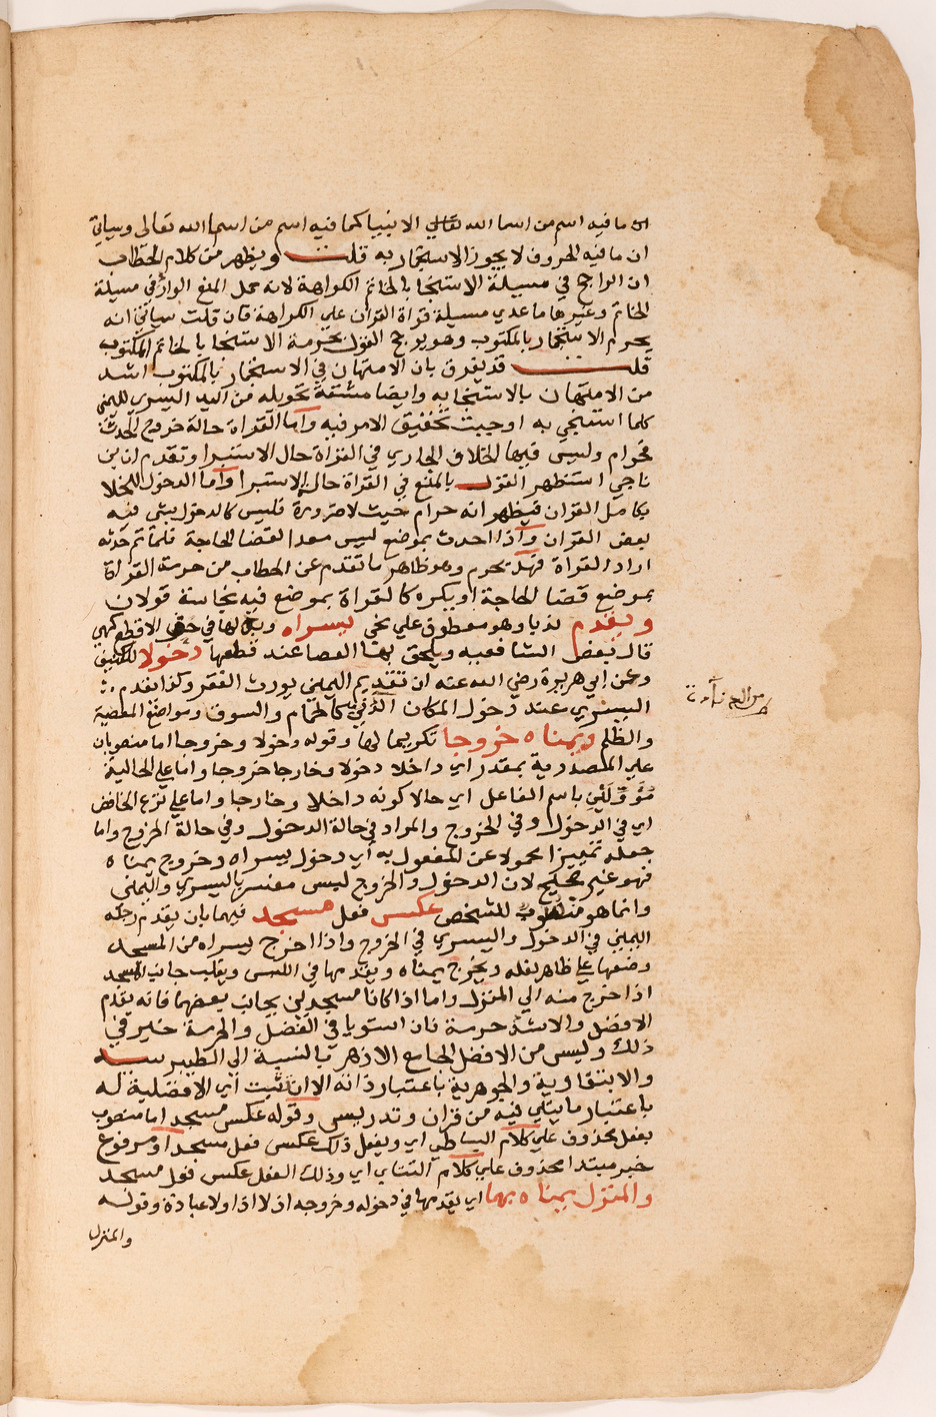 ان ما فيه اسم من اسما الله تعالي الانبيا كما فيه اسم من اسما الله تعالى وسياتي
ان ما فيه الحروف لا يجوز الاستجمار به قلت ويظهر من كلام الحطاب
ان الراجح في مسيلة الاستنجا بالخاتم الكراهة لانه حمل المنع الوارد في مسيلة
الخاتم وغيرها ما عدي مسيلة قراة القران علي الكراهة فان قلت سياتي انه
يحرم الاستجمار بالمكتوب وهو يرجح القول بحرمة الاستنجا بالخاتم المكتوب
قلت قد يفرق بان الامتهان في الاستجمار بالمكتوب اشد
من الامتهان بالاستنجا به وايضا مشقة تحويله من اليد اليسري لليمني
كلما استنجي به اوجبت تخفيق الامر فيه واما القراة حالة خروج الحدث
فحرام وليس فيها الخلاف الجاري في القراة حال الاستبرا وتقدم ان بن
ناجي استظهر القول بالمنع في القراة حال الاستبرا واما الدخول للخلا
بكامل القران فيظهر انه حرام حيث لا ضرورة فليس كالدخول بشي فيه
بعض القران واذا احدث بموضع ليس معدا لقضا الحاجة فلما تم حدثه
اراد القراة فهل تحرم وهو ظاهر ما تقدم عن الحطاب من حرمة القراة
بموضع قضا الحاجة او يكره كالقراة بموضع فيه نجاسة قولان
ويقدم ندبا وهو معطوف علي نحي يسراه وبدلها في حق الاقطع كهي
قال بعض الشافعيه ويلحق بها العصا عند قطعها دخولا للكنيف
وعن ابي هريرة رضي الله عنه ان تقديم اليمني يورث الفقر وكذا تقدم
اليسري عند دخول المكان الدني كالحمام والسوق ومواضع المعصية
والظلم ويمناه خروجا تكريما لها وقوله دخولا وخروجا اما منصوبان
علي المصدرية بمقدر اي داخلا دخولا وخارجا خروجا واما علي الحالية
مؤولين باسم الفاعل اي حال كونه داخلا وخارجا واما علي نزع الخافض
اي في الدخول وفي الخروج والمراد في حالة الدخول وفي حالة الخروج واما
جعله تمييزا محولا عن المفعول به اي دخول يسراه وخروج يمناه
فهو غير صحيح لان الدخول والخروج ليس مفسرا باليسري واليمني
وانما هو منسوب للشخص عكس فعل مسجد فيهما بان يقدم رجله
اليمني في الدخول واليسري في الخروج واذا اخرج يسراه من المسجد
وضعها علي ظاهر نعله ويخرج يمناه ويقدمها في اللبس ويقلب جانب المسجد
اذا خرج منه الي المنزل واما اذا كانا مسجدين بجانب بعضهما فانه يقدم
الافضل والاشد حرمة فان استويا في الفضل والحرمة خير في
ذلك وليس من الافضل الجامع الازهر بالنسبة الي الطيبرسية
والابتغاوية والجوهرية باعتبار ذاته الا ان ثبت اي الافضلية له
باعتبار ما يتلي فيه من قران وتدريس وقوله عكس مسجد اما منصوب
بفعل محذوف علي كلام البساطي اي ويفعل ذلك عكس فعل مسجد او مرفوع
خبر مبتدا محذوف علي كلام التتاي اي وذلك الفعل عكس فعل مسجد
والمنزل يمناه بهما اي يقدمها في دخوله وخروجه اذ لا اذا ولا عبادة وقوله
والمنزل